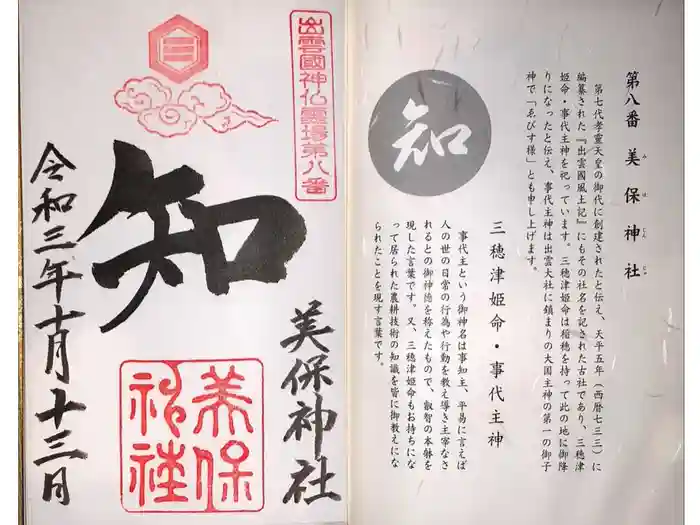 第八番 美保神社
み ほ じん じゃ
第七代孝霊天皇の御代に創建されたと伝え、天平五年(西暦七三三)に
編纂された『出雲國風土記』にもその社名を記された古社であり、三穂津
姫命・事代主神を祀っています。三穂津姫命は稲穂を持って此の地に御降
りになったと伝え、事代主神は出雲大社に鎮まりの大国主神の第一の御子
神で「ゑびす様」とも申し上げます。
三穂津姫命・事代主神
事代主という御神名は事知主、平易に言えば
人の世の日常の行為や行動を教え導き主宰なさ
れるとの御神徳を称えたもので、叡智の本躰を
現した言葉です。又、三穂津姫命もお持ちにな
って居られた農耕技術の知識を皆に御教えにな
られたことを現す言葉です。
知
出雲國神仏霊場第八番
知
美保神社
美保
神社
令和三年十月十三日